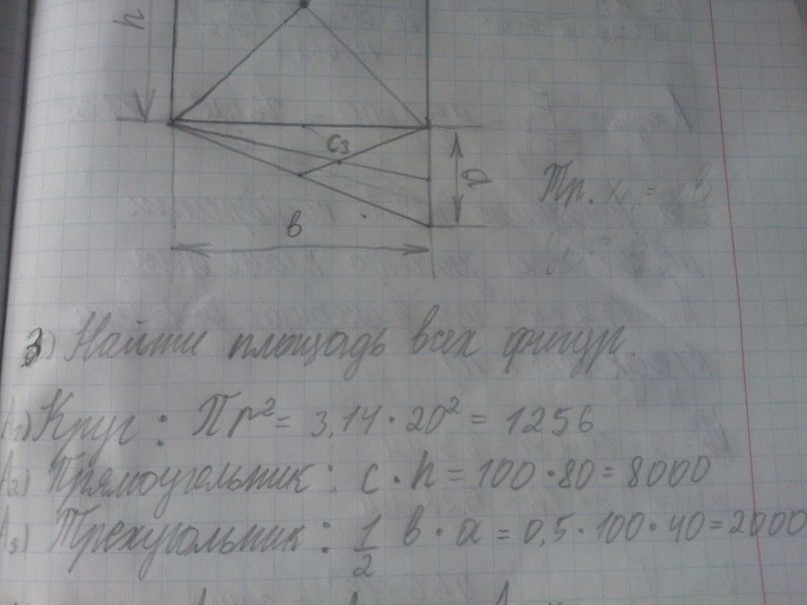 h
C₃
a
в
Тр. x₁ =
3) Найти площадь всех фигур.
A₁) Круг : Пr² = 3,14 · 20² = 1256
A₂) Прямоугольник : c · h = 100 · 80 = 8000
A₃) Трехугольник : 1/2 в · a = 0,5 · 100 · 40 = 2000